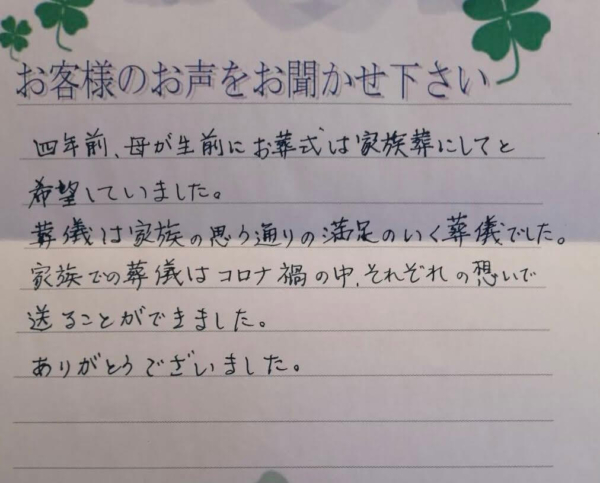 お客様のお声をお聞かせ下さい
四年前、母が生前にお葬式は家族葬にしてと
希望していました。
葬儀は家族の思う通りの満足のいく葬儀でした。
家族での葬儀はコロナ禍の中、それぞれの想いで
送ることができました。
ありがとうございました。